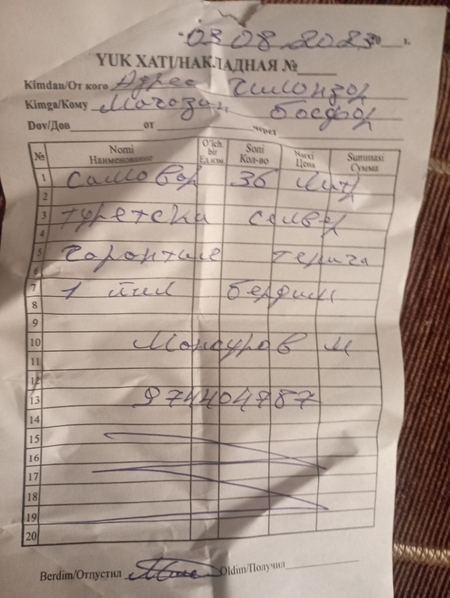 03 08 2023 г.
YUK XATI/НАКЛАДНАЯ №
Kimdan/От кого Адрес Чилонзор
Kimga/Кому Магозин Босфор
Dov/Дов от через
№ Nomi Наименование O'lch. bir Ед.изм. Soni Кол-во Narxi Цена Summasi Сумма
1 Самовар 36 литр
2
3 туретски селвер
4
5 гарантие
6
7 1 йил бердим
8
9
10 Мансуров М
11
12
13 974404787
14
15
16
17
18
19
20
Berdim/Отпустил Oldim/Получил